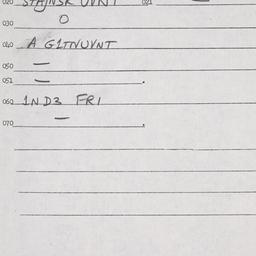 020 STAJNSK UVNT 021 —
030 O
040 A G1TTVUVNT
050 —
051 —
060 1ND3 FRI
070 —